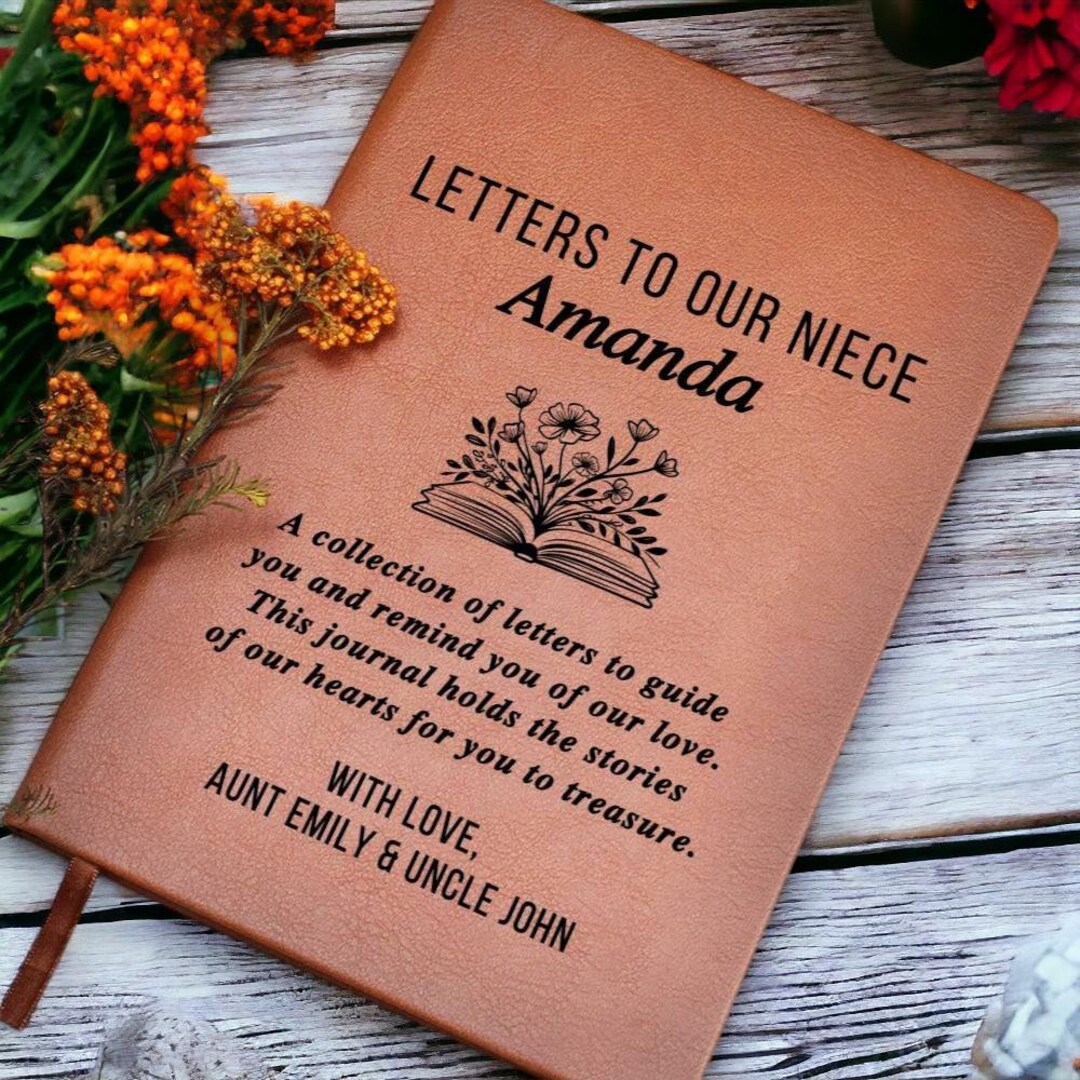 LETTERS TO OUR NIECE
Amanda
A collection of letters to guide
you and remind you of our love.
This journal holds the stories
of our hearts for you to treasure.
WITH LOVE,
AUNT EMILY & UNCLE JOHN